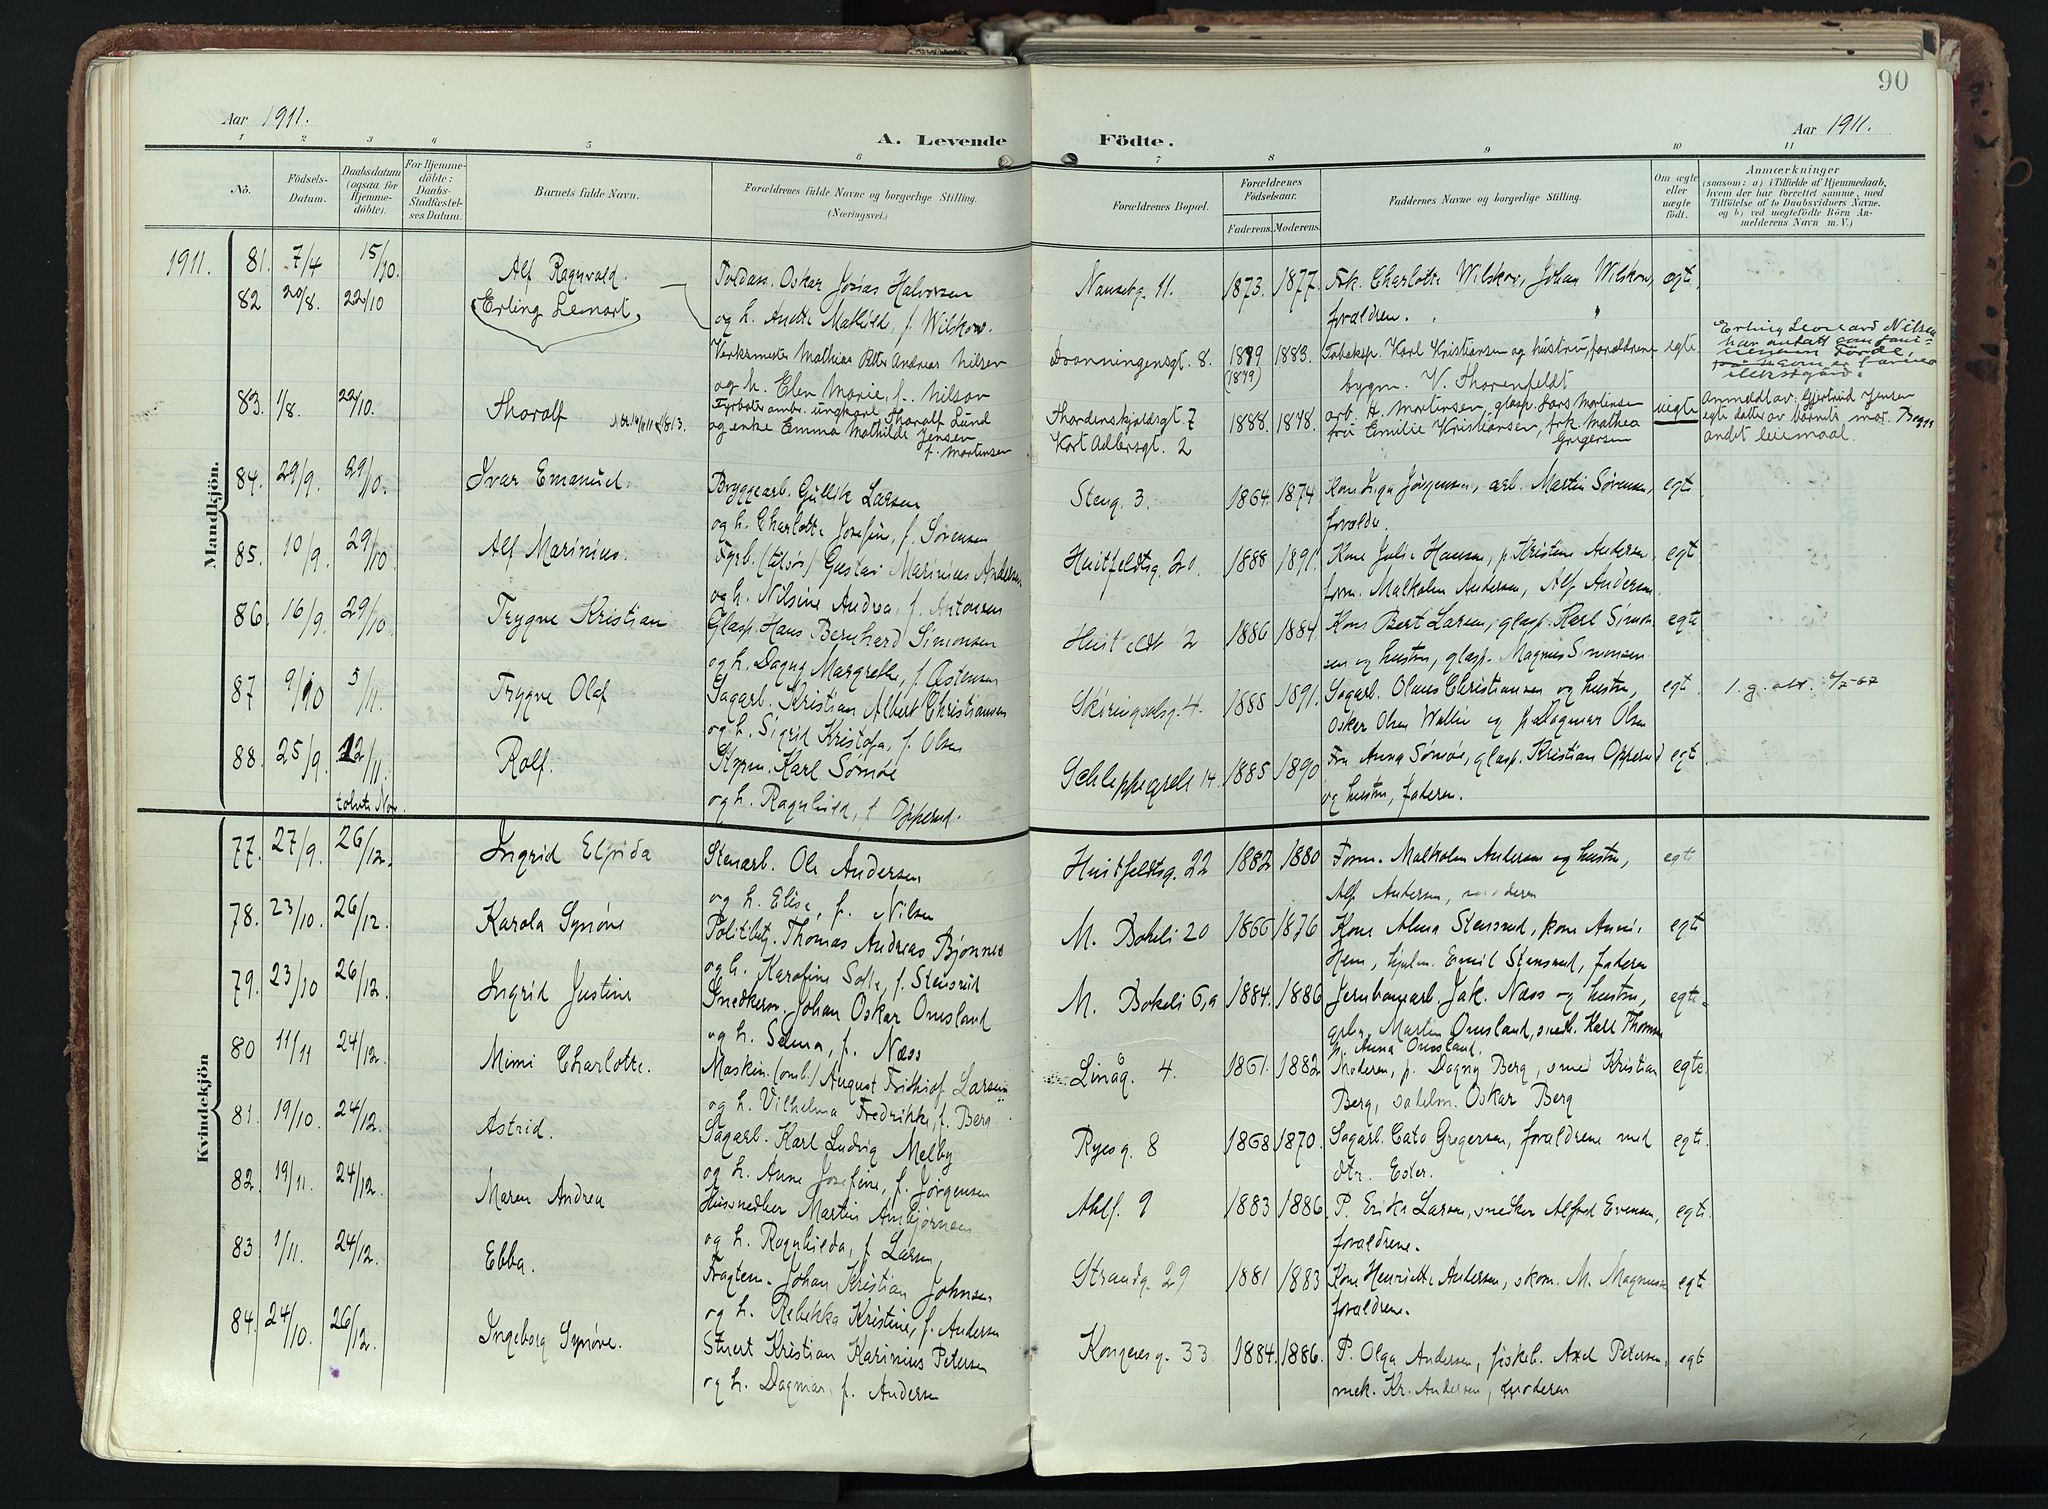 90
Aar 1911.
A. Levende Födte.
Aar 1911.
1 2 3 4 5 6 7 8 9 10 11
No.
Födsels-
Datum.
Daabsdatum
(ogsaa for
Hjemme-
döbte).
For Hjemme-
döbte:
Daabs-
Stadfæstel-
ses Datum.
Barnets fulde Navn.
Forældrenes fulde Navne og borgerlige Stilling.
(Næringsvei.)
Forældrenes Bopæl.
Forældrenes
Födselsaar.
Faderens. Moderens.
Faddernes Navne og borgerlige Stilling.
Om ægte
eller
uægte
født.
Anmærkninger
(saasom: a) i Tilfælde af Hjemmedaab,
hvem der har forrettet samme, med
Tilføielse af to Daabsvidners Navne.
og b) ved uægtefödte Börn An-
melderens Navn m. V.)
Mandkjön.
1911. 81. 7/4 15/10. Alf Ragnvald. Oskar Josias Halvorsen
og h. Anette Mathild, f. Wilskow.
Nansetg. 11. 1873. 1877. Frk. Charlotte Wilskov, Johan Wilskow, egte
foraldren.
82 20/8. 22/10 Erling Lenart. Verksmester Mathias Otter Andreas Nilsen
og h. Elen Marie, f. Nilson
Dronningensgt. 8. 1879 1883. Karl Kristiansen og hustru, forældrene egte
(1879) bygm. V. Thorenfeldt
Erling Leonard Nilsen
har antatt som fami-
83. 1/8. 22/10. Thoralf Fyrbøter ungkarl Thoralf Lund
og enke Emma Mathilde Jensen
f. Mortensen
Thordenskjoldsgt 7
Kort Adlersgt. 2
1888. 1878. arb. H. Mortensen, glasp. Lars Mortensen
fru Emilie Kristiansen, frk Mathea
Gregersen
uegte
Anmeldt av: Gjertrud Jensen
egte datter av barnets mor. Begges
andet leiermaal.
84. 29/9. 29/10. Ivar Emanuel. Bryggearb. Gullik Larsen
og h. Charlotte Josefine, f. Sørensen
Steng. 3. 1864. 1874 Kone Inga Jørgensen, arb. Martin Sørensen, egte
foraldr.
85. 10/9. 29/10. Alf Marinius. Fyrb. Gustav Marinius Andersen
og h. Nilsine Andrea, f. Antonsen
Huitfeldtsg. 20. 1888 1891. Kone Julie Hansen, p. Kristine Andersen, egt
form. Malkolm Andersen, Alf Andersen.
86. 16/9. 29/10. Trygve Kristian Glasp. Hans Bernhard Simonsen
og h. Dagny Margrethe, f. Østensen
2 1886 1884 Kone Bert Larsen, glasp. Karl Simon- egte
sen og hustru, glasp. Magnus Simonsen
87 9/10 5/11. Trygve Olaf Sagarb. Kristian Albert Christiansen
og h. Sigrid Kristofa, f. Olsen
Skiringsalsg. 4. 1888 1891. Sagarb. Olaus Christiansen og hustru, egt.
Oskar Olsen Wallin og p. Dagmar Olsen
88. 25/9. 12/11. Rolf. Styrm. Karl Sømøe
og h. Ragnhild, f. Opperud.
Schleppegrels 14. 1885 1890 Fru Anna Sømøe, glasp. Kristian Opperud egt
og hustru, faderen.
tolvte Nov.
Kvindekjön
77. 27/9. 26/12. Ingrid Elfrida Stenarb. Ole Andersen
og h. Elise, f. Nilsen
Huitfeldtsg. 22 1882 1880 Form. Malkolm Andersen og hustru, egt
Alf Andersen, moderen
78. 23/10. 26/12. Karola Synøve Politibtj. Thomas Andreas Bjønnes
og h. Karoline Sofie, f. Stensrud
M. Bokeli 20 1866 1876 Kone Alma Stensrud, kone Anni. egt
Hem, hjulm. Emil Stensrud, faderen
79. 23/10 26/12. Ingrid Justine Snedkersv. Johan Oskar Omsland
og h. Selma, f. Næss
M. Bokeli 6, a 1884. 1886 Jernbanearb. Jak. Næss og hustru, egte.
Martin Omsland, snedk. Karl Thomsen
p. Anna Omsland.
80 11/11 24/12. Mimi Charlotte. Maskin. (omb.) August Frithjof Larsen
og h. Vilhelma Fredrikke, f. Berg.
Linåg. 4. 1861. 1882 Moderen, p. Dagny Berg, smed Kristian egte.
Berg, Oskar Berg
81. 19/10. 24/12. Astrid. Sagarb. Karl Ludvig Melby
og h. Anne Josefine, f. Jørgensen
Ryesg. 8 1868 1870. Sagarb. Cato Gregersen, foraldrene med egt.
dtr. Ester.
82. 19/11. 24/12. Maren Andrea Hussnedker Martin Ambjørnsen
og h. Ragnhilda, f. Larsen,
Ahlf. 9 1883 1886. P. Erika Larsen, snedker Alfred Evensen, egt.
foraldrene.
83 1/11. 24/12. Ebba. Fragtem. Johan Kristian Johnsen
og h. Rebekka Kristine, f. Andersen
Strandg. 29 1881 1883 Kone Henriette Andersen, skom. M. Magnussen egt.
foraldrene.
84. 24/10. 26/12. Ingeborg Synøve. Stuert Kristian Karinius Petersen
og h. Dagmar, f. Andersen
Kongensg. 33 1884. 1886. P. Olga Andersen, fiskeh. Axel Petersen, egt
mek. Kr. Andersen, moderen